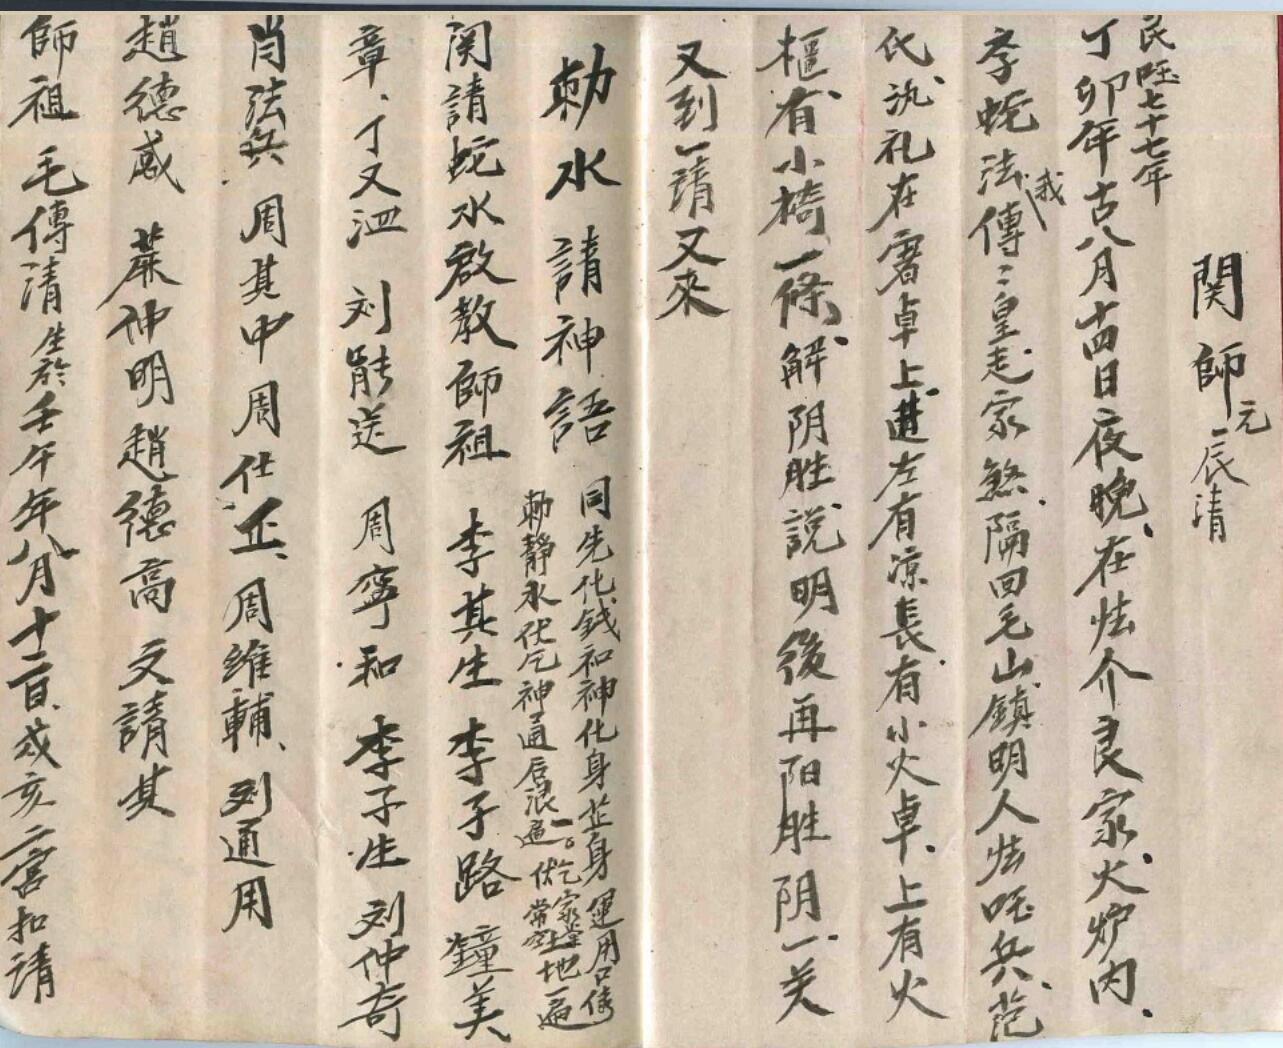 関師元辰清
民呍七十七年
丁卯年古八月十四日夜晚、在怯介良家火炉内、
李蛇法傳〻皇走家煞、隔回毛山鎮明人怯呍兵、范
我
氏氿礼在窗卓上進左有凉長有小火卓、上有火
樞有小椅一條、解阴胜說明後再阳胜阴一关
又到一请又來
勅水請神語
同先化錢和神化身並身運用口
勅靜水伏乞神通后浪遍一。伏乞家堂土地一遍
関請蛇水啟教師祖 李其生 李子路 鐘美
章、丁又泗 刘能送 周寧和 李子生 刘仲奇
肖法兵 周其中 周仕正、周維輔、刘通用
趙德咸 蔴仲明 趙德高 又請其
師祖毛傳清生於壬午年八月十二日、戌亥二宫扣請